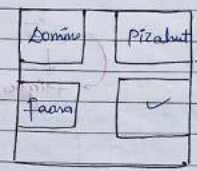 Domino Pizahut
Paasa ✓